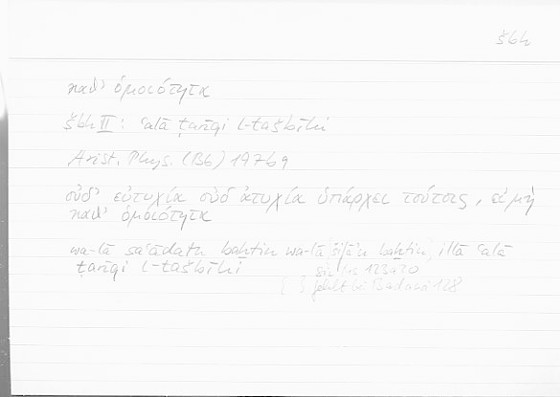 šbh
καθ' ὁμοιότητα
šbh II: ʿalā ṭarīqi l-tašbīhi
Arist. Phys. (B6) 197b9
οὐδ' εὐτυχία οὐδ' ἀτυχία ὑπάρχει τούτοις, εἰ μὴ
καθ' ὁμοιότητα
wa-lā saʿādatu baḫtin wa-lā baḫtin, illā ʿalā
ṭarīqi l-tašbīhi
123a20
fehlt bei Badawi 128